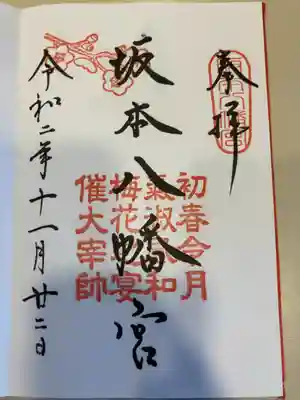 奉拝
坂本八幡宮
令和二年十一月廿二日
初春令月
氣淑和
梅花宴
催大宰帥